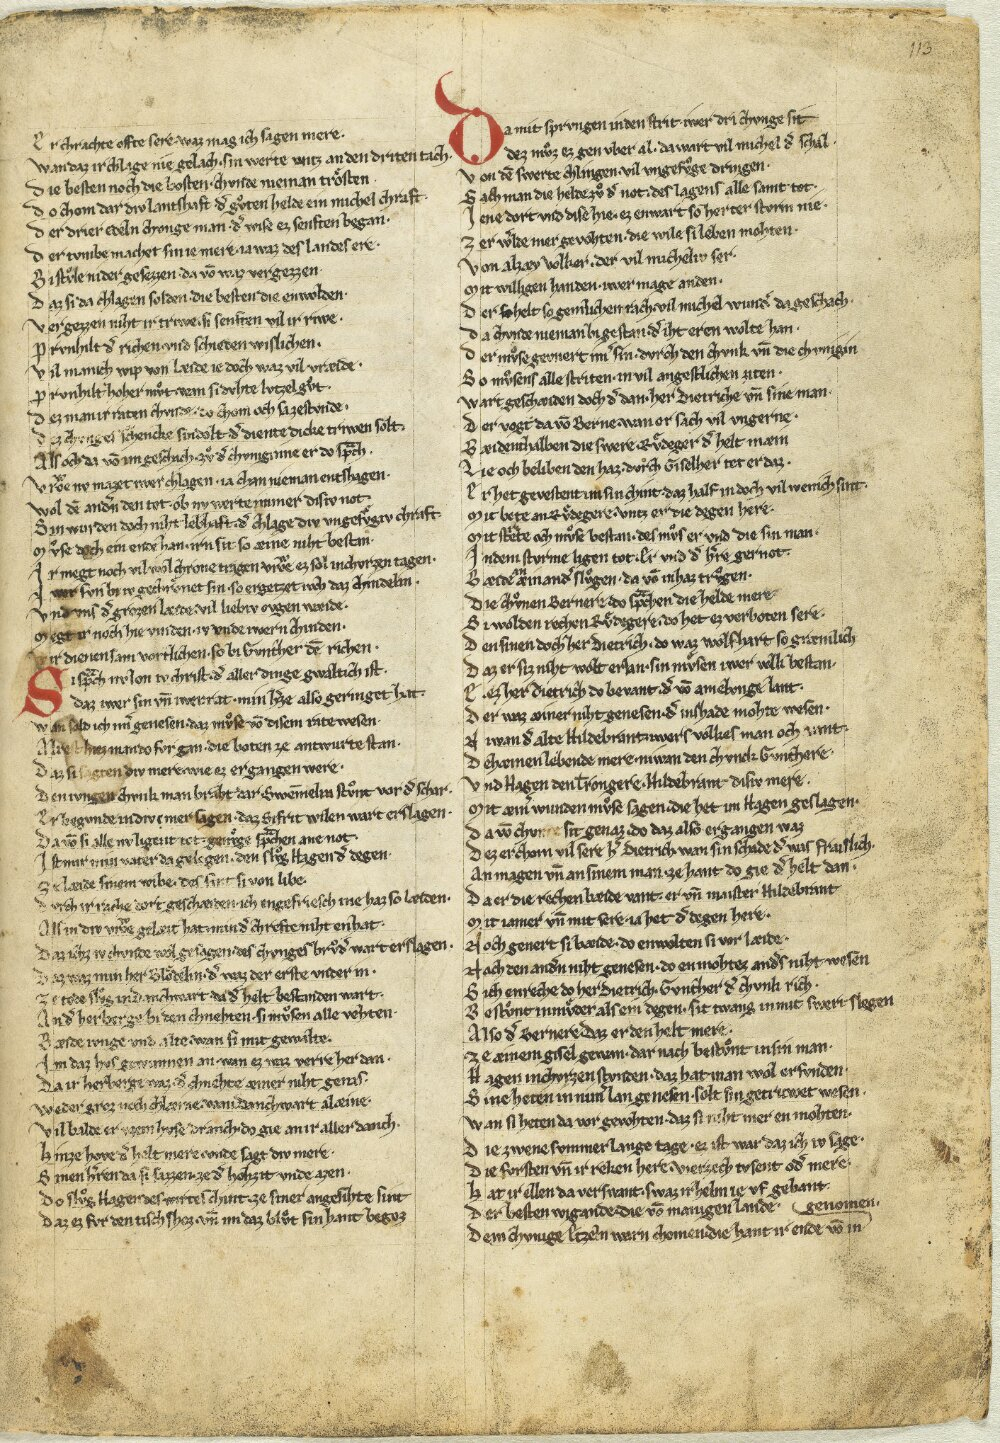 113
Er chrachte offte sere waz mag ich sagen mere·
Wan daz ir chlage nie gelach· sin werte vntz an den driten tach·
Die besten noch die bosten· chvnde nieman trôsten·
Do chom dar div lantshaft d͛ gvͦten helde ein michel chraft·
Der drier edeln chvnge man· d͛ wise ez senften began·
Der tvmbe machet sin ie mere· ia waz des landes ere·
Bi stvͦle nider gesezzen· da vō waz vergezzen·
Daz si da chlagen solden· die besten die enwolden·
Vergezzen niht ir triwe· si senften vil ir riwe·
Prvnhilt d͛ richen· vnd schieden wislichen·
Vil manich wip von læide ie doch waz vil vræide·
Prvnhilt hoher mvͦt· wem si dvhte lvtzel gvͦt·
Dez man ir raten chvnde· do chom och sa zestvnde·
Dez chvnges schencke sindolt· d͛ diente dicke triwen solt·
Als och da vō im geschach· zvͦ d͛ chvniginne er do sp͛ch·
Vrôwe nv mazet iwer chlagen· ia chan nieman entshagen·
Wol dē and͛n den tot· ob nv werte immer disiv not·
Sin wurden doch niht lebhaft· d͛ chlage div vngefvͦgiv chraft·
Mvͦse doch ein ende han· irn sit so æine niht bestan·
Ir megt noch vil wol chrone tragen vrôwe ez sol in chvrzen tagen·
Iwer svn bi iv gechrônet sin· so ergetzet iwch daz chindelin·
Vnd vns d͛ grozen læide· vil liebiv ovgen wæide·
Megt ir noch hie vinden· iv vnde iwern chinden·
Wir dienen sam vortlichen· so bi Gvnther dē richen·
Si sp͛ch nv lon iv christ· d͛ aller dinge gwaltich ist·
daz iwer sin vn̄ iwer rat· min h͛ze also geringet hat·
Wan sold ich im͛ genesen· daz mvͦse vō disem rate wesen·
Alre hiez man do fvr gan· die boten ze antwurte stan·
Daz si sagten div mere· wie ez ergangen were·
Den ivngen chvnk man braht dar· Swem̄elin stvͦnt vor d͛ schar·
Er begvnde in div mer sagen· daz Sifrit wilen wart erslagen·
Da vō si alle nv ligent tot· genvͦge sp͛chen ane not·
Ist mir min vater da gelegen· den slvͦg Hagen d͛ degen·
Ze læide sinem wibe· des sint si von libe·
Dvrch ir rache dort geschæiden· ich engefriesch nie haz so læiden·
Als in div vrôwe gelæit hat· nu d͛ chrefte niht en hat·
Daz ichz iv chvnde wol gesagen· des chvnges brvͦd͛ wart erslagen·
Daz waz min her Blôdelin· d͛ waz der erste vnder in·
Ze tode slvͦg in danchwart· da d͛ helt bestanden wart·
An d͛ herberge bi den chnehten· si mvͦsen alle vehten·
Bæide ivnge vnd alte· wan si mit gewalte·
In daz hvs gewunnen an· wan ez waz verre her dan·
Da ir herberge waz· d͛ chnehte æiner niht genas·
Weder groz noch chlæine· wan danchwart alæine·
Vil balde er vzem hvse dranch· do gie an ir aller danch·
Hinze hove d͛ helt mere· vnde sagt div mere·
Sinen h͛ren da si sazzen· ze d͛ hohzit vnde azen·
Do slvͦg Hagen des wirtes chint· ze siner angesihte sint
Daz ez fvr den tisch shoz· vn̄ im daz blvͦt sin hant begoz
Da mit sprvngen in den strit· iwer dri chvnge sit
dez mvͦz ez gen vber al· da wart vil michel d͛ schal·
Von dē swerte chlingen· vil vngefvͦge dringen·
Sach man die helde zvͦ d͛ not· des lagens alle samt tot·
Iene dort vnd dise hie· ez enwart so herter storm nie·
Zer w͛lde mer gevohten· die wile si leben mohten·
Von alzay volker· der vil micheliv ser·
Mit willigen handen· iwer mage anden·
Der helt so gemlichen rach· vil michel wund͛ da geschach·
Da chvnde nieman bi gestan· d͛ iht eren wolte han·
Der mvͦse gevnert im͛ sin· dvrch den chvnk vn̄ die chvnigin
So mvͦsens alle striten· in vil angestlichen ziten·
Wart geschæiden doch d͛ dan· her Dietriche vn̄ sine man·
Der vogt da vō Berne· wan or sach vil vngerne·
Bæidenthalben die swere· Rvͦdeger d͛ helt mæin
Lie och beliben den haz· dvrch Giselher tet er daz·
Er het gevestent im sin chint· daz half in doch vil wenich sint·
Mit bete an Rvͦdegere· vntz er die degen here·
Mit st͛ite och mvͦse bestan· des mvͦs er vnd die sin man·
In dem stvrme ligen tot· Er vnd d͛ h͛re gernot·
Bæide an æinand͛ slvͦgen· da vō in haz trvͦgen·
Die chvͦnen Bernere· do sp͛chen die helde mere·
Si wolden rechen Rvͦdegere· do het ez verboten sere·
Den sinen doch her Dietrich· do waz wolfhart so græmlich
Daz er siz niht wolt erlan· sin mvͦsen iwer volk bestan·
Ez her Dietrich do bevant· d͛ vō amelvnge lant·
Der waz æiner niht genesen· d͛ in shade mohte wesen·
Niwan d͛ alte Hildebrant· iwers volkes man och vant·
Dehæinen lebende mere· niwan den chvnck Gvnthere·
Vnd Hagen den tronegere· Hildebrant disiv mere·
Mit æin͛ wunden mvͦse sagen· die het im Hagen geslagen·
Da vō chvme sit genaz· do daz also ergangen waz
Dez erchom vil sere h͛ Dietrich· wan sin schade d͛ was fraislich·
An magen vn̄ an sinem man· ze hant do gie d͛ helt dan·
Da er die rechen bæide vant· er vn̄ maister Hildebrant
Mit iamer vn̄ mit sere· ia het d͛ degen here·
Noch genert si bæide· do enwolten si vor læide·
Nach den and͛n niht genesen· do en mohtez and͛s niht wesen
Sich enreche do her Dietrich· Gvnther d͛ chvnk rich·
Bestvͦnt in mvͦder als ein degen· sit twang in mit swert slegen
Also d͛ Bernere· daz er den helt mere·
Ze æinem gisel gewan· dar nach bestvͦnt in sin man·
Hagen in chvrzen stvnden· daz hat man wol erfvnden·
Sine heten in nim͛ lan genesen· solt sin getriwet wesen·
Wan si heten da vor gewohten· daz si niht mer en mohten·
Die zwene svmmer lange tage· ez ist war daz ich iv sage·
Die fvrsten vn̄ ir reken here· vierzech tvsent od͛ mere·
Hat ir ellen da verswant· swaz ir helm ie vf gebant·
Der besten wigande· die vō manigen lande·
genomen·
Dem chvnige Etzeln warn chomen· die hant ir ende vō in